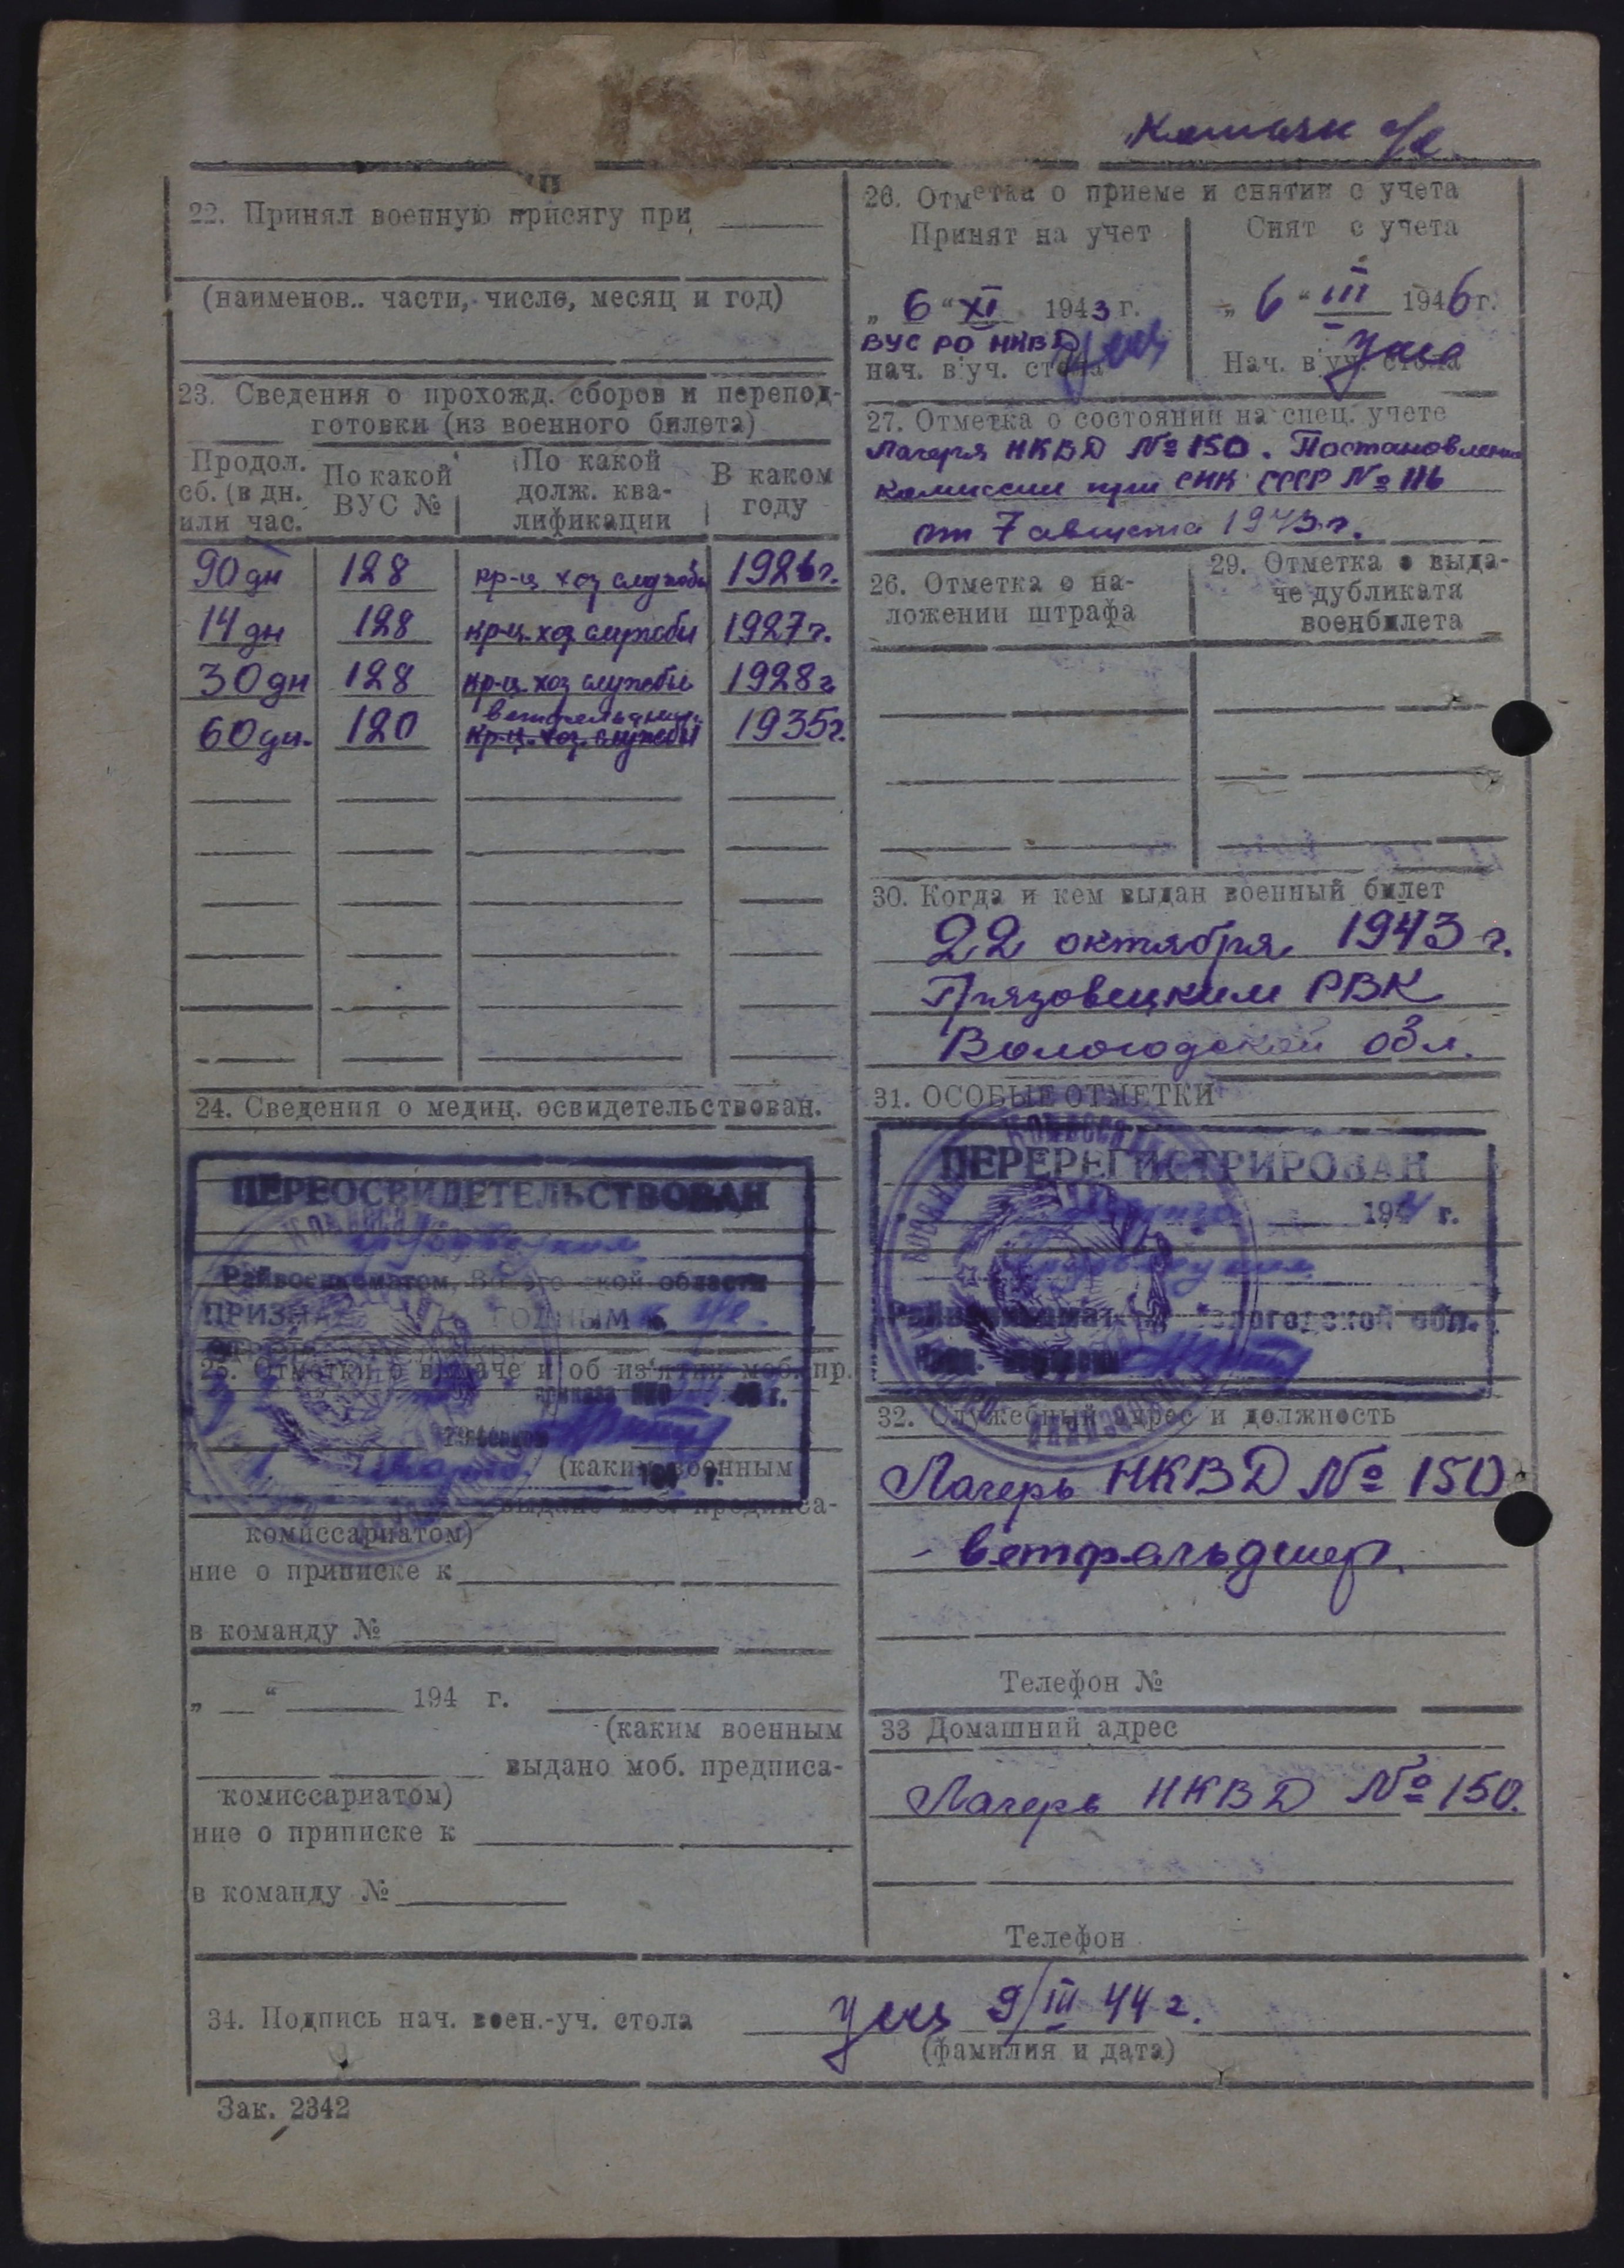 22. Принял военную присягу при
(наименов.. части, число, месяц и год)
23. Сведения о прохожд. сборов и перепод-
готовки (из военного билета)
Продол. сб. (в дн. или час. | По какой ВУС № | По какой долж. ква-лификации | В каком году
90 дн 128 кр-ц хоз службы 1926 г.
14 дн 128 кр-ц. хоз службы 1927 г.
30 дн 128 кр-ц. хоз службы 1928 г
60 дн. 120 кр-ц. хоз. службы 1935 г.
24. Сведения о медиц. освидетельствован.
ПЕРЕОСВИДЕТЕЛЬСТВОВАН
Райвоенкоматом, области
ГОДНЫМ
25. Отметки о выдаче и об из'ятии моб. пр.
(каким военным
выдано моб. предписа-
комиссариатом)
ние о приписке к
в команду №
„ “ 194 г.
(каким военным
выдано моб. предписа-
комиссариатом)
ние о приписке к
в команду №
26. Отметка о приеме и снятии с учета
Принят на учет
Снят с учета
„ 6 “ XI 1943 г.
„ 6 “ III 1946 г.
ВУС РО НКВД
нач. в'уч. стола
Нач. в'уч. стола
27. Отметка о состоянии на спец. учете
Лагеря НКВД № 150. Постановление
Комиссии при СНК СССР № 116
от 7 августа 1943 г.
26. Отметка о на-
ложении штрафа
29. Отметка о выда-
че дубликата
военбилета
30. Когда и кем выдан военный билет
22 октября 1943 г.
Грязовецким РВК
Вологодской обл.
31. ОСОБЫЕ ОТМЕТКИ
ПЕРЕРЕГИСТРИРОВАН
1944 г.
Вологодской обл.
32. Служебный адрес и должность
Лагерь НКВД № 150
- ветфельдшер.
Телефон №
33 Домашний адрес
Лагерь НКВД № 150.
Телефон
34. Подпись нач. воен.-уч. стола
9/III 44 г.
(фамилия и дата)
Зак. 2342